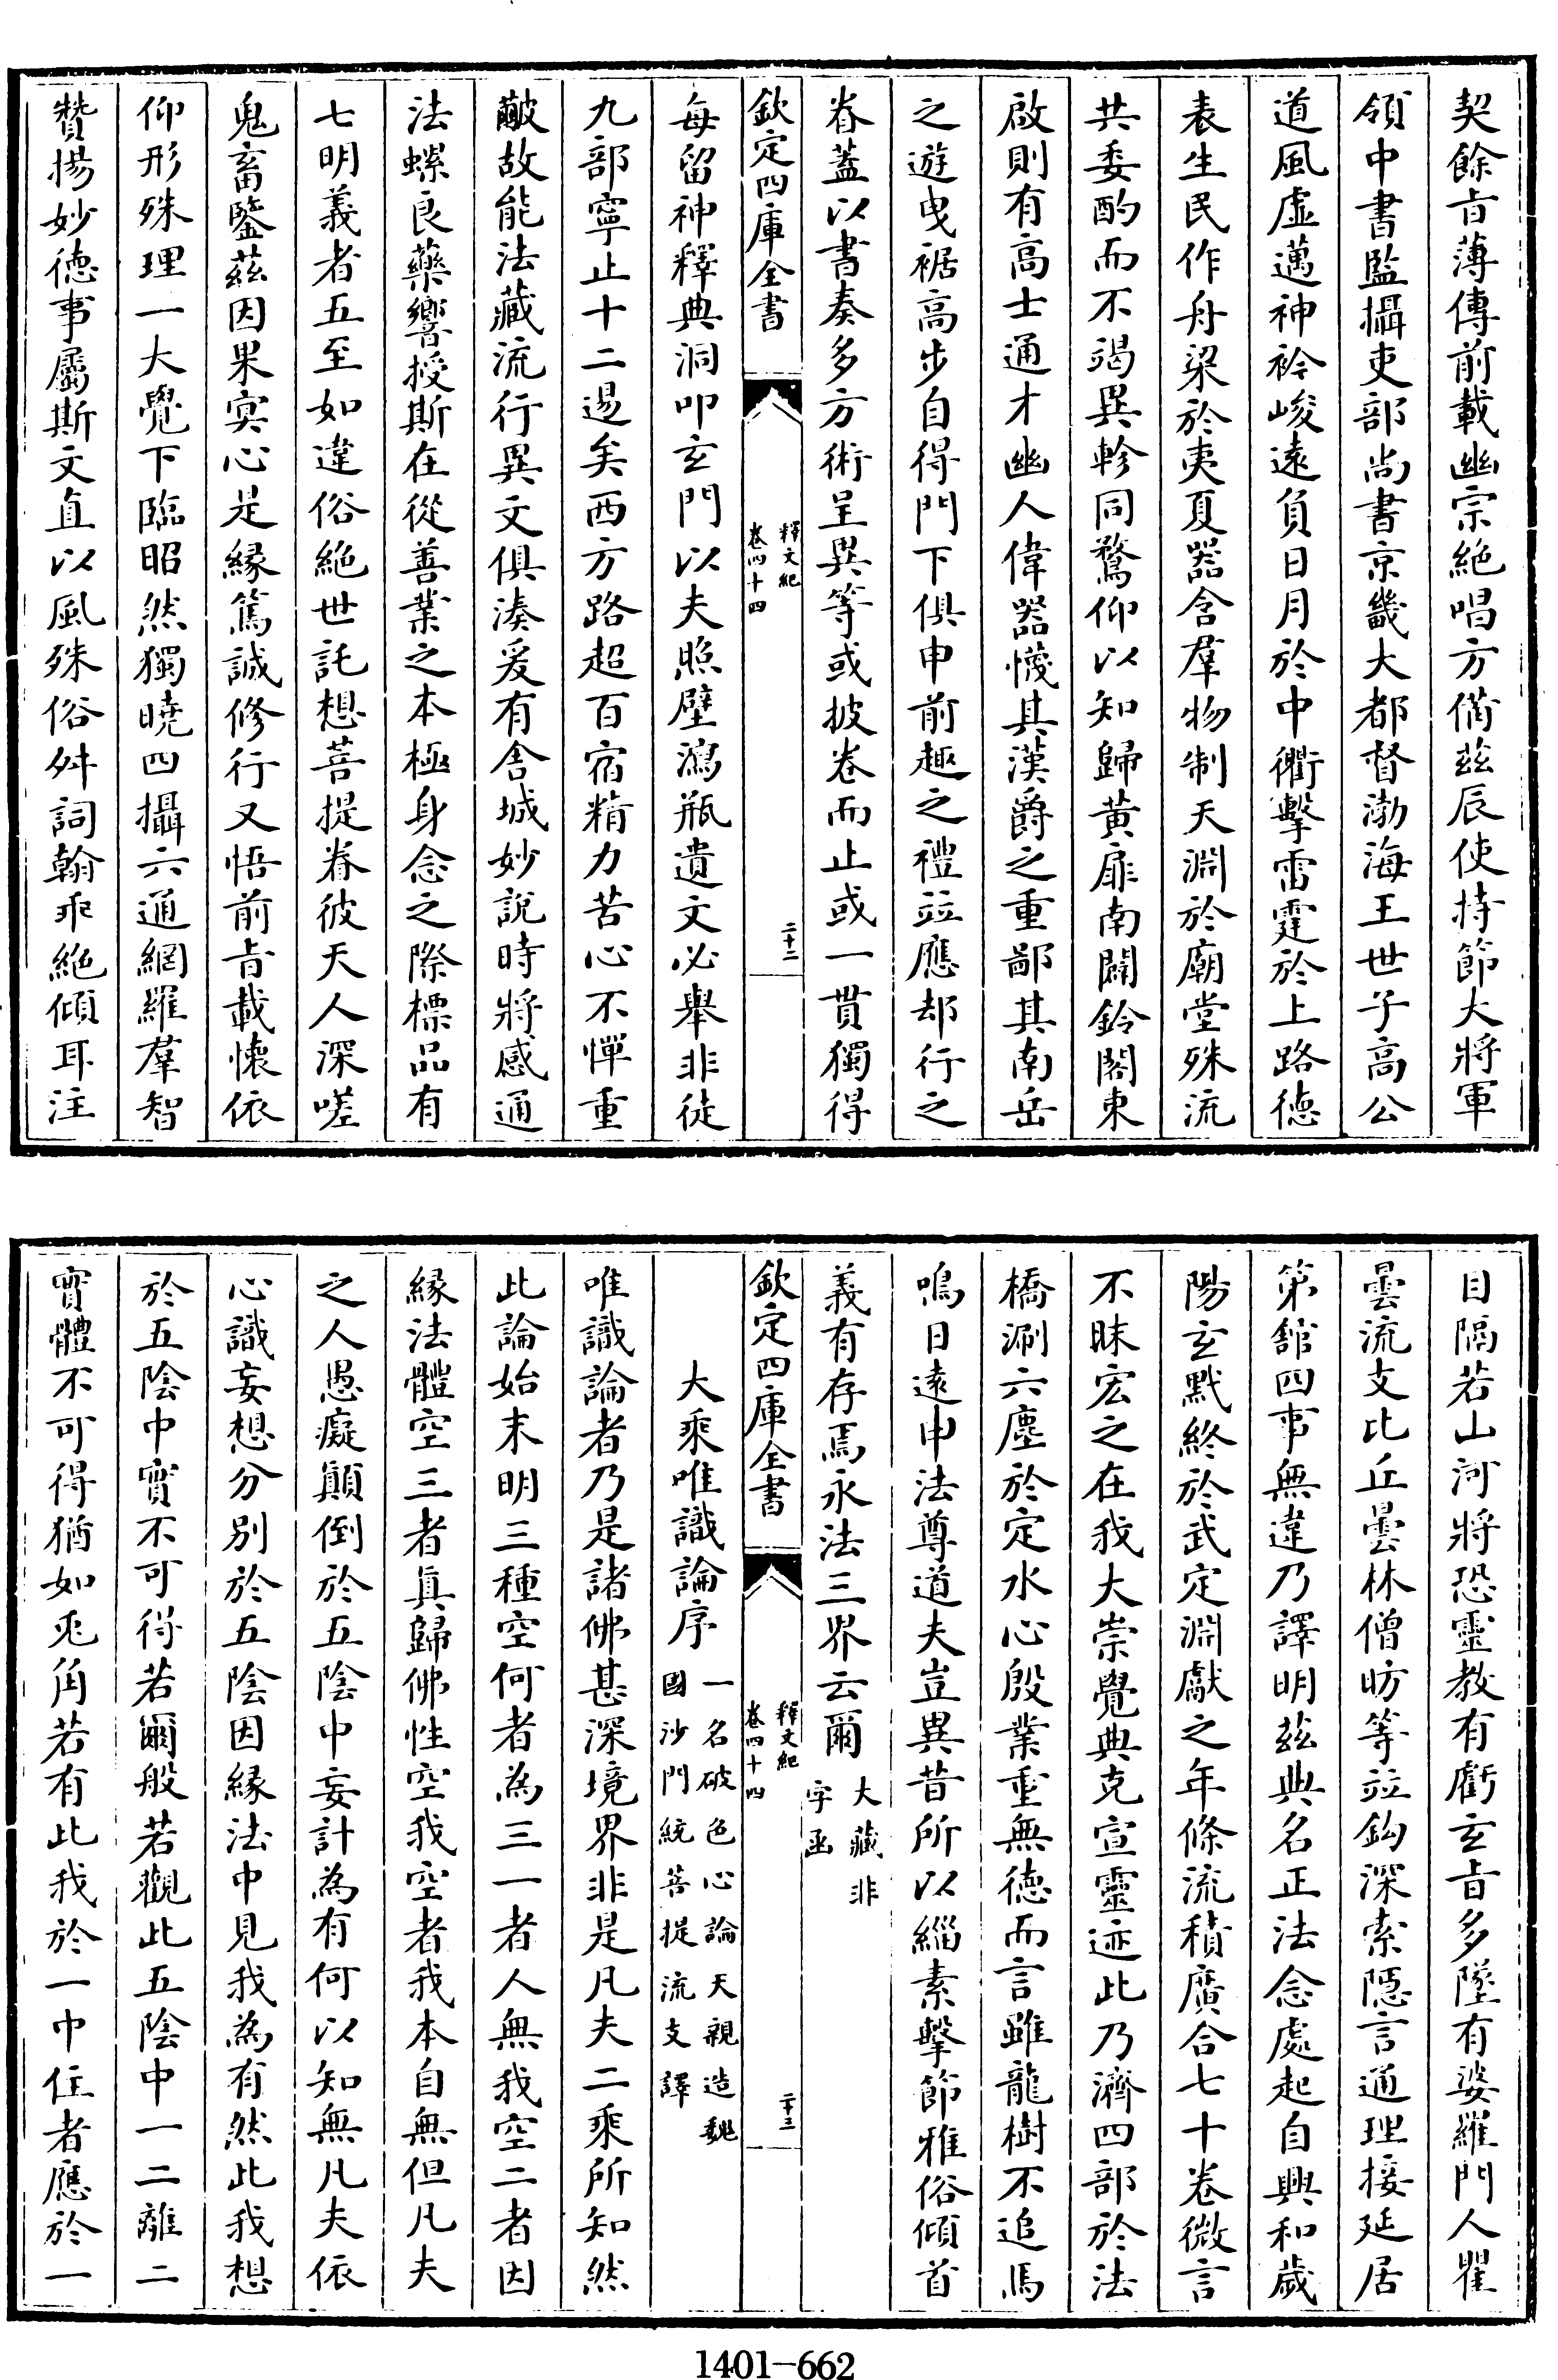 契餘㫖薄傳前載幽宗絶唱方備兹辰使持節大將軍
領中書監攝吏部尚書京畿大都督渤海王世子高公
道風虛邁神衿峻遠負日月於中衢擊雷霆於上路德
表生民作舟梁於夷夏器含羣物制天淵於廟堂殊流
共委酌而不竭異軫同騖仰以知歸黄扉南闢鈴閣東
啟則有高士通才幽人偉器懱其漢爵之重鄙其南岳
之遊曳裾高步自得門下俱申前趣之禮竝應却行之
眷蓋以書奏多方術呈異等或披卷而止或一貫獨得
欽定四庫全書
釋文紀
卷四十四
二十二
每留神釋典洞叩玄門以夫照壁瀉瓶遺文必舉非徒
九部寧止十二逷矣西方路超百宿精力苦心不憚重
皾故能法藏流行異文俱湊爰有舍城妙說時將感通
法螺良藥響授斯在從善業之本極身念之際標品有
七明義者五至如違俗絶世託想菩提眷彼天人深嗟
鬼畜鑒兹因果寔心是縁篤誠修行又悟前㫖載懐依
仰形殊理一大覺下臨昭然獨曉四攝六通網羅羣智
贊揚妙德事屬斯文直以風殊俗舛詞翰乖絶傾耳注
目隔若山河將恐靈教有虧玄㫖多墜有婆羅門人瞿
曇流支比丘曇林僧昉等竝鈎深索隱言通理接延居
第舘四事無違乃譯明兹典名正法念處起自興和歲
陽玄黓終於武定淵獻之年條流積廣合七十卷微言
不昧宏之在我大崇覺典克宣靈迹此乃濟四部於法
橋涮六塵於定水心殷業重無德而言雖龍樹不追馬
鳴日遠申法尊道夫豈異昔所以緇素擊節雅俗傾首
義有存焉永法三界云爾
大藏非
字函
欽定四庫全書
釋文紀
卷四十四
二十三
大乘唯識論序
一名破色心論天親造魏
國沙門統菩提流支譯
唯識論者乃是諸佛甚深境界非是凡夫二乘所知然
此論始末明三種空何者為三一者人無我空二者因
縁法體空三者真歸佛性空我空者我本自無但凡夫
之人愚癡顛倒於五陰中妄計為有何以知無凡夫依
心識妄想分别於五陰因縁法中見我為有然此我想
於五陰中實不可得若爾般若觀此五陰中一二離二
實體不可得猶如兎角若有此我於一中住者應於一
1401-662